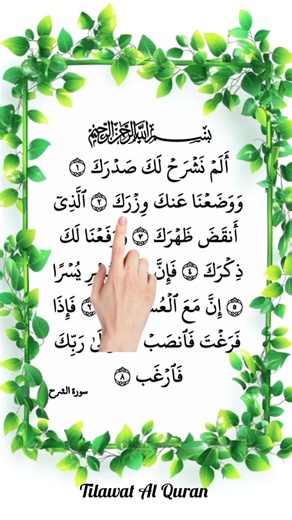 بِسْمِ اللَّهِ الرَّحْمَٰنِ الرَّحِيمِ
أَلَمْ نَشْرَحْ لَكَ صَدْرَكَ ۝١
وَوَضَعْنَا عَنكَ وِزْرَكَ ۝٢ ٱلَّذِىٓ
أَنقَضَ ظَهْرَكَ ۝٣ وَرَفَعْنَا لَكَ
ذِكْرَكَ ۝٤ فَإِنَّ يُسْرًا
۝٥ إِنَّ مَعَ ٱلْعُسْرِ ۝٦ فَإِذَا
فَرَغْتَ فَٱنصَبْ رَبِّكَ
فَٱرْغَب ۝٨
سورة الشرح
Tilawat Al Quran